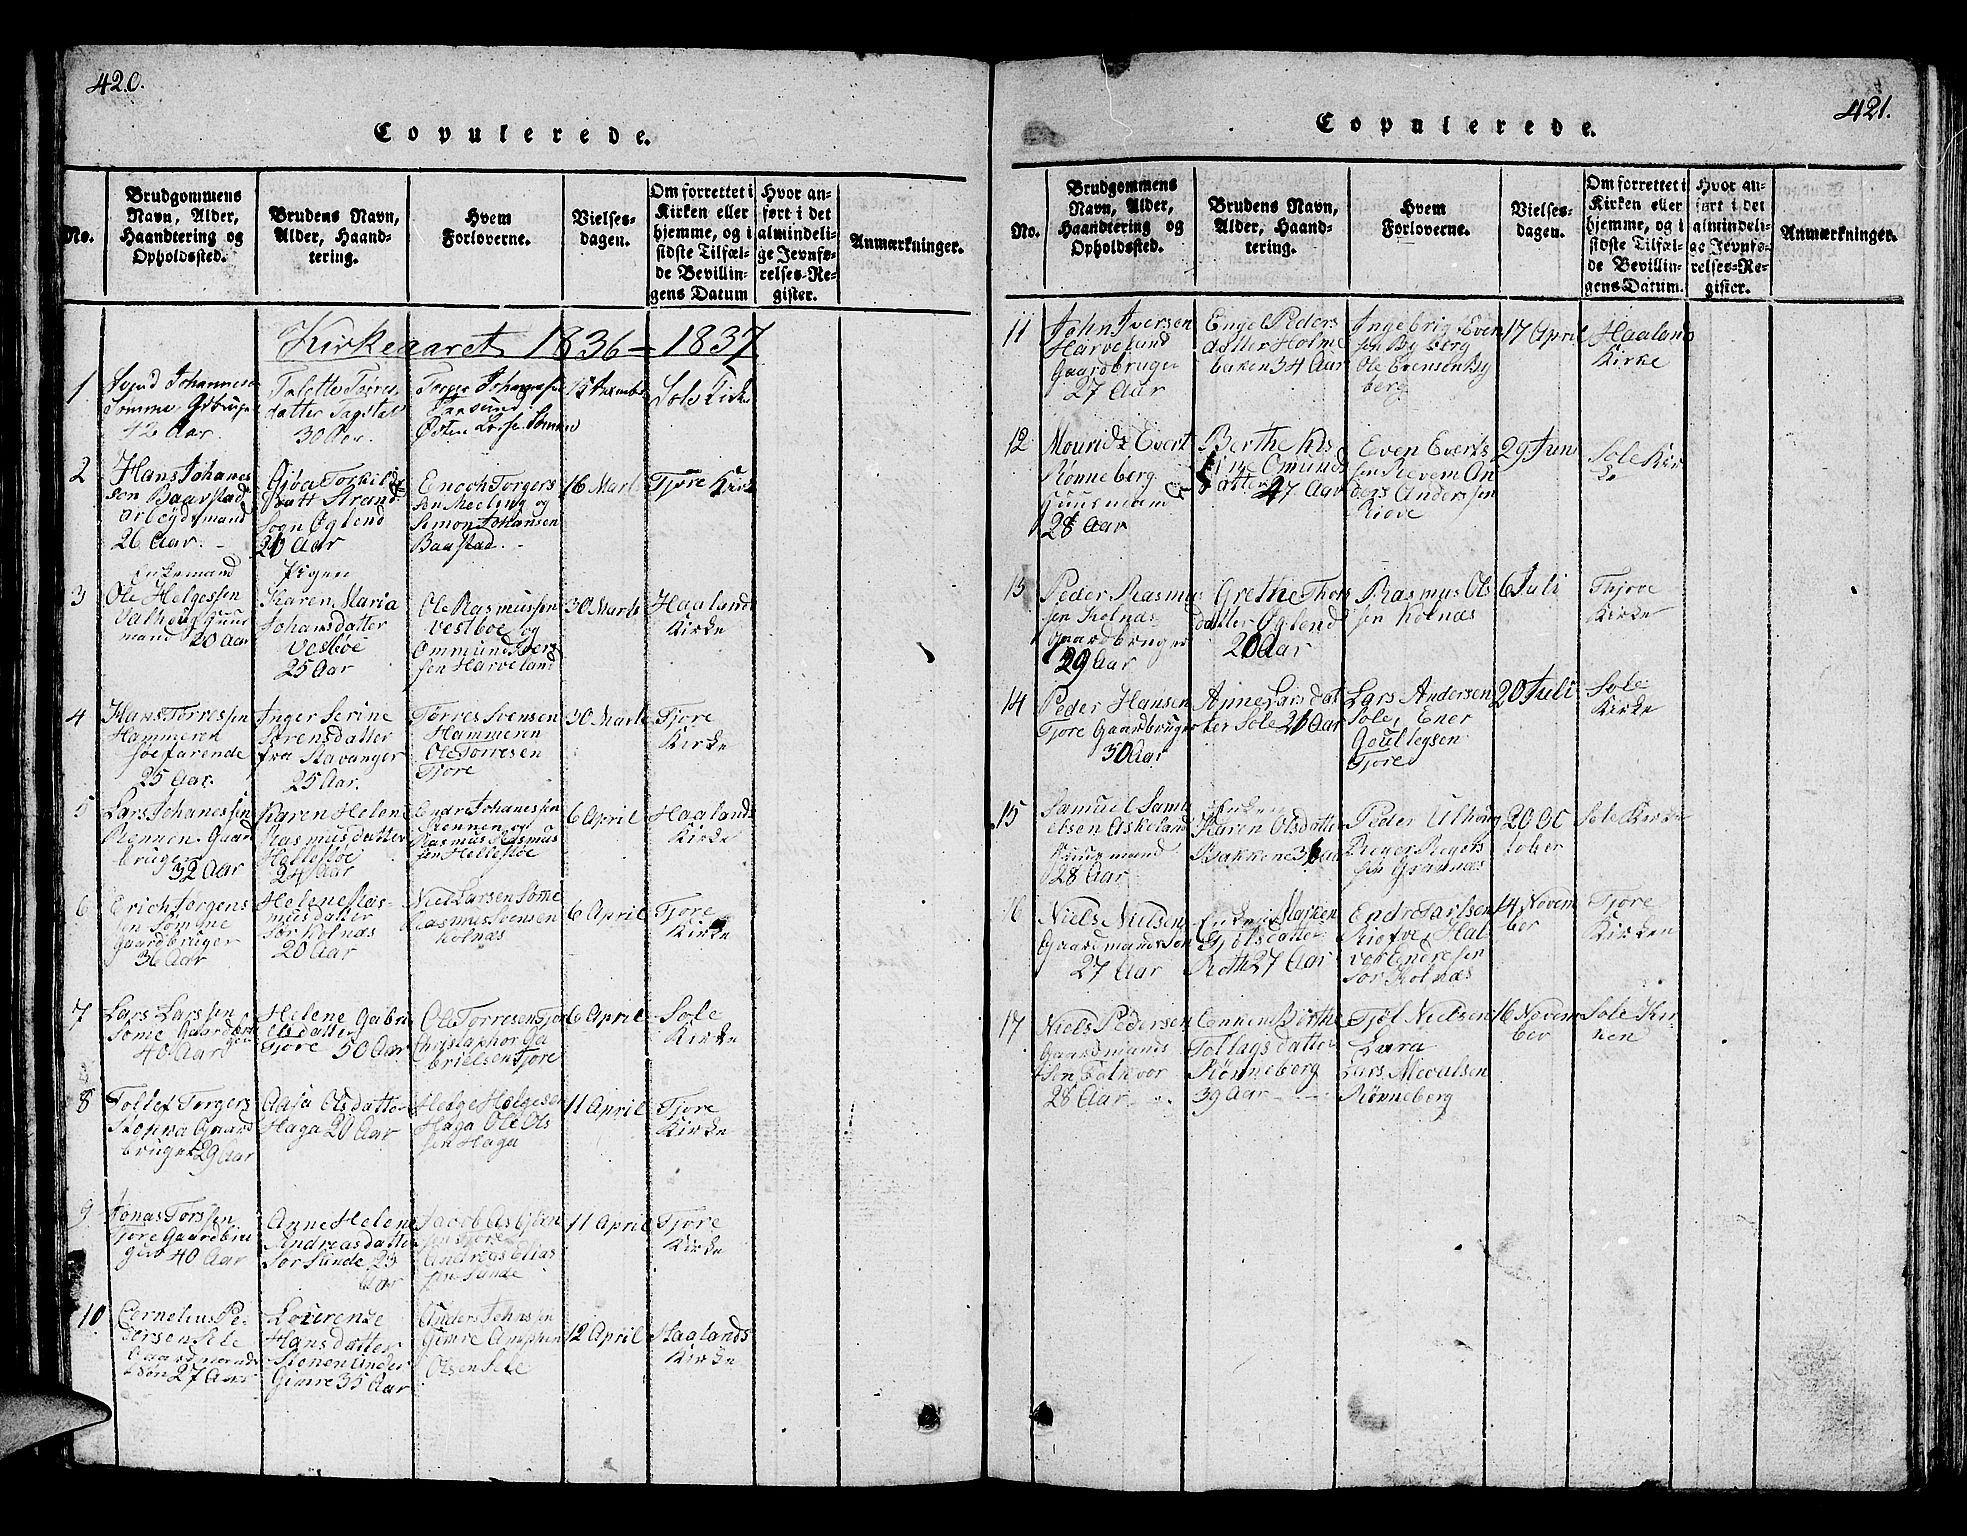 420.
Copulerede.
No.
Brudgommens
Navn, Alder,
Haandtering og
Opholdssted.
Brudens Navn,
Alder, Haand-
tering.
Hvem
Forloverne.
Vielses-
dagen.
Om forrettet i
Kirken eller
hjemme, og i
sidste Tilfæl-
de Bevillin-
gens Datum
Hvor an-
ført i det
almindeli-
ge Jevnfø-
relses-Re-
gister.
Anmærkninger.
Kirkeaaret 1836 - 1837
1
Johannes
Somme
42 Aar.
Torres
datter
30
Østen
Sole Kirke
2
Hans Johanes
sen Baarstad
arbeydsmand
26 Aar.
Torkels
datt Strand
Sogn Øglend
Aar
Enoch Torgers
sen Meeling og
Simon Johansen
Baastad.
16 Marts
Tjore Kirke
3
Enkemand
Ole Helgessen
Valhoug Huus
mand 20 Aar
Pigen
Karen Maria
Johansdatter
Vestboe
25 Aar
Ole Rasmussen
Vestboe og
Ommund Ivers
sen Harveland
30 Marts
Haalands
Kirke
4
Hans Torressen
Hammeren
søefarende
25 Aar.
Inger Serine
Sørensdatter
fra Stavanger
25 Aar.
Torres Svensen
Hammeren
Ole Torresen
Tjore
30 Marts
Tjore
Kirke
5
Lars Johanessen
Rennen Gaard
bruger
32 Aar
Karen Helene
Rasmusdatter
Hellestøe
24 Aar
Endre Johanessen
Rennen og
Rasmus Rasmus
sen Hellestøe
6 April
Haalands
Kirke
6
Erich Torgens
sen Somme
Gaardbruger
36 Aar
Helene Ras-
musdatter
Sør Kolnæs
20 Aar
Niels Larsen Sømme
Rasmus Svensen
Kolnæs
6 April
Tjore
Kirke
7
Lars Larssen
Some Gaardbru
40 Aar ger
Helene Gabri
elsdatter
Tjore 50 Aar
Ole Torresen Tjore
Christopher Ga
brielsen Tjore
6 April
Sole
Kirke
8
Tollef Torgers
Gaard
bruger 29 Aar
Aasa Olsdatter
Haga 20 Aar
Helge Helgesen
Haga Ole Ols
sen Haga
11 April
Tjore
Kirke
9
Jonas Torssen
Tjore Gaardbru
ger 40 Aar
Anne Helene
Andreasdatter
Sør Sunde 23
Aar
Jacob Asbjøen
sen Tjore
Andreas Elias
sen Sunde
11 April
Tjore
Kirke
10
Cornelius Pe
dersen Sele
Gaardmands
søn 27 Aar
Lourense
Hansdatter
Stenen under
Gimre 35 Aar
Anders Johnssen
Gimre
Olsen Sele
12 April
Haalands
Kirke
421.
Copulerede.
No.
Brudgommens
Navn, Alder,
Haandtering og
Opholdssted.
Brudens Navn,
Alder, Haand-
tering.
Hvem
Forloverne.
Vielses-
dagen.
Om forrettet i
Kirken eller
hjemme, og i
sidste Tilfæl-
de Bevillin-
gens Datum.
Hvor an-
ført i det
almindeli-
ge Jevnfø-
relses-Re-
gister.
Anmærkninger.
11
John Iversen
Harveland
Gaardbruger
27 Aar
Engel Peders
datter Holme
bakken 34 Aar
Ingebrig Even
sen Byberg
Ole Evensen By
berg
17 April
Haalands
Kirke
12
Mourids Evert
Rønneberg
Huusmand
28 Aar
Berthe
Omunds
datter 47 Aar
Even Everts
sen Revem An
ders Anderssen
Riøve
29 Juni
Sole Kir
ke
13
Peder Rasmus
sen Kolnæs
gaardbruger
29 Aar
Grethe Thors
datter Øglend
20 Aar
Rasmus Ols
sen Kolnæs
6 Juli
Thjore
Kirke
14
Peder Hansen
Tjore Gaardbruger
30 Aar
Anne Larsdat
ter Sole Aar
Lars Andersen
Sole, Ener
Goutlegsen
Tjore
20 Juli
Sole
Kirke
15
Samuel Samu
elsen Askeland
Huusmand
28 Aar
Enken
Karen Olsdatter
Bakkene Aar
Peder Ulhoug
Reger Regers
sen Grannæs
20 Oc
tober
Sole Kirke
16
Niels Nielsen
Gaardmands søn
27 Aar
Enken Marken
Tjølsdatter
Roth 27 Aar
Endre Larsen
Riofve, Hal
vor Endresen
Sør Kolnæs
14 Novem
ber
Tjore
Kirken
17
Niels Pedersen
Gaardmands
søn
28 Aar
Enken Børthe
Tollagsdatter
Rønneberg
39 Aar
Tjøl Nielsen
Lars
Rønneberg
16 Novem
ber
Sole Kir-
ken